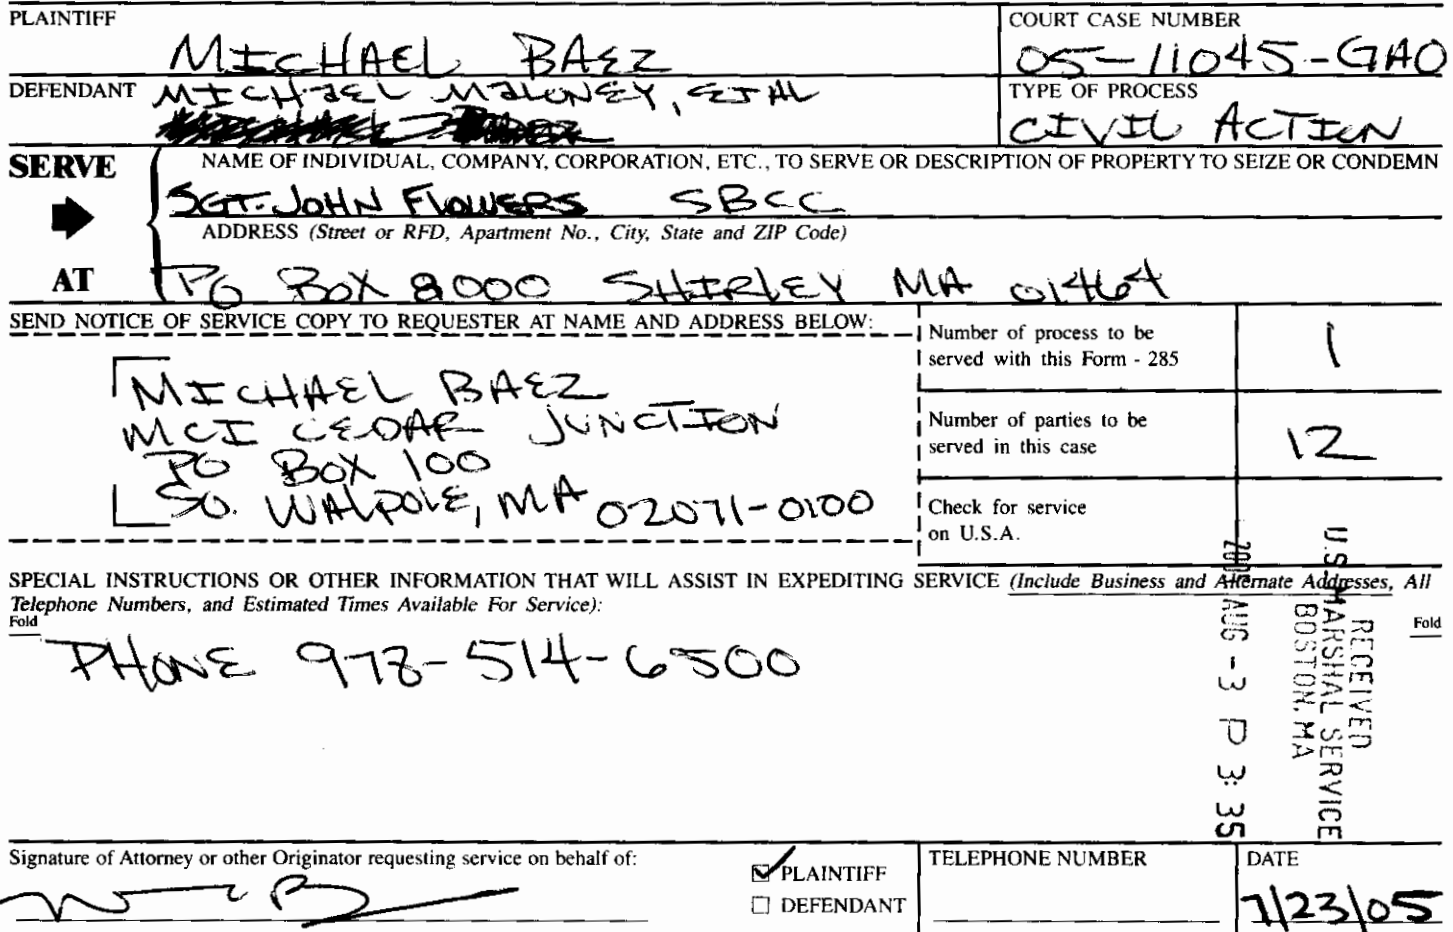 PLAINTIFF
MICHAEL BAEZ
COURT CASE NUMBER
05-11045-GAO
DEFENDANT MICHAEL MALONEY, ET AL
TYPE OF PROCESS
CIVIL ACTION
SERVE
NAME OF INDIVIDUAL, COMPANY, CORPORATION, ETC., TO SERVE OR DESCRIPTION OF PROPERTY TO SEIZE OR CONDEMN
SGT. JOHN FLOWERS SBCC
ADDRESS (Street or RFD, Apartment No., City, State and ZIP Code)
AT
PO BOX 8000 SHIRLEY MA 01464
SEND NOTICE OF SERVICE COPY TO REQUESTER AT NAME AND ADDRESS BELOW:
MICHAEL BAEZ
MCI CEDAR JUNCTION
PO BOX 100
SO. WALPOLE, MA 02071-0100
Number of process to be
served with this Form - 285
1
Number of parties to be
served in this case
12
Check for service
on U.S.A.
SPECIAL INSTRUCTIONS OR OTHER INFORMATION THAT WILL ASSIST IN EXPEDITING SERVICE (Include Business and Alternate Addresses, All
Telephone Numbers, and Estimated Times Available For Service):
Fold
Fold
PHONE 978-514-6500
RECEIVED
U.S. MARSHAL SERVICE
BOSTON, MA
AUG -3 P 3:35
Signature of Attorney or other Originator requesting service on behalf of:
PLAINTIFF
DEFENDANT
TELEPHONE NUMBER
DATE
7/23/05